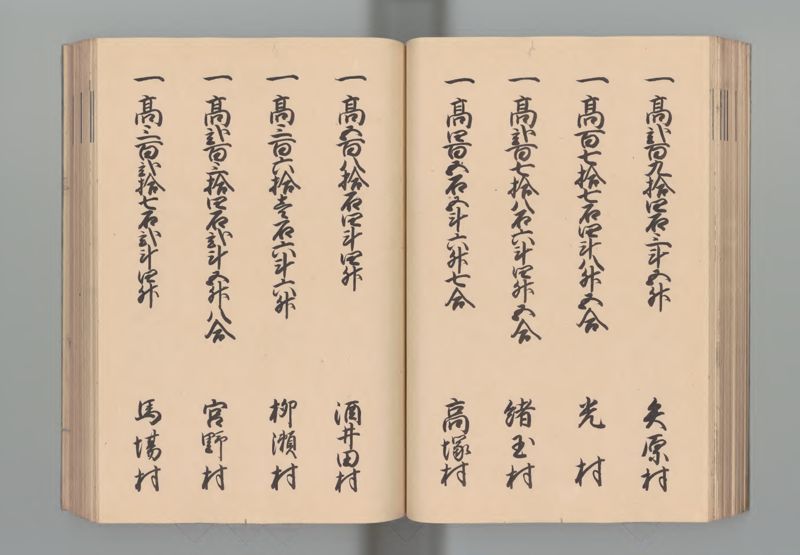 一 高弐百九拾四石三斗五升 矢原村
一 高百七拾七石四斗八升五合 光村
一 高弐百七拾八石六斗四升五合 緒玉村
一 高四百五石五斗六升七合 高塚村
一 高五百八拾石四斗四升 酒井田村
一 高三百六拾壱石六斗六升 柳瀬村
一 高弐百三拾四石弐斗五升八合 宮野村
一 高三百弐拾七石弐斗四升 馬場村